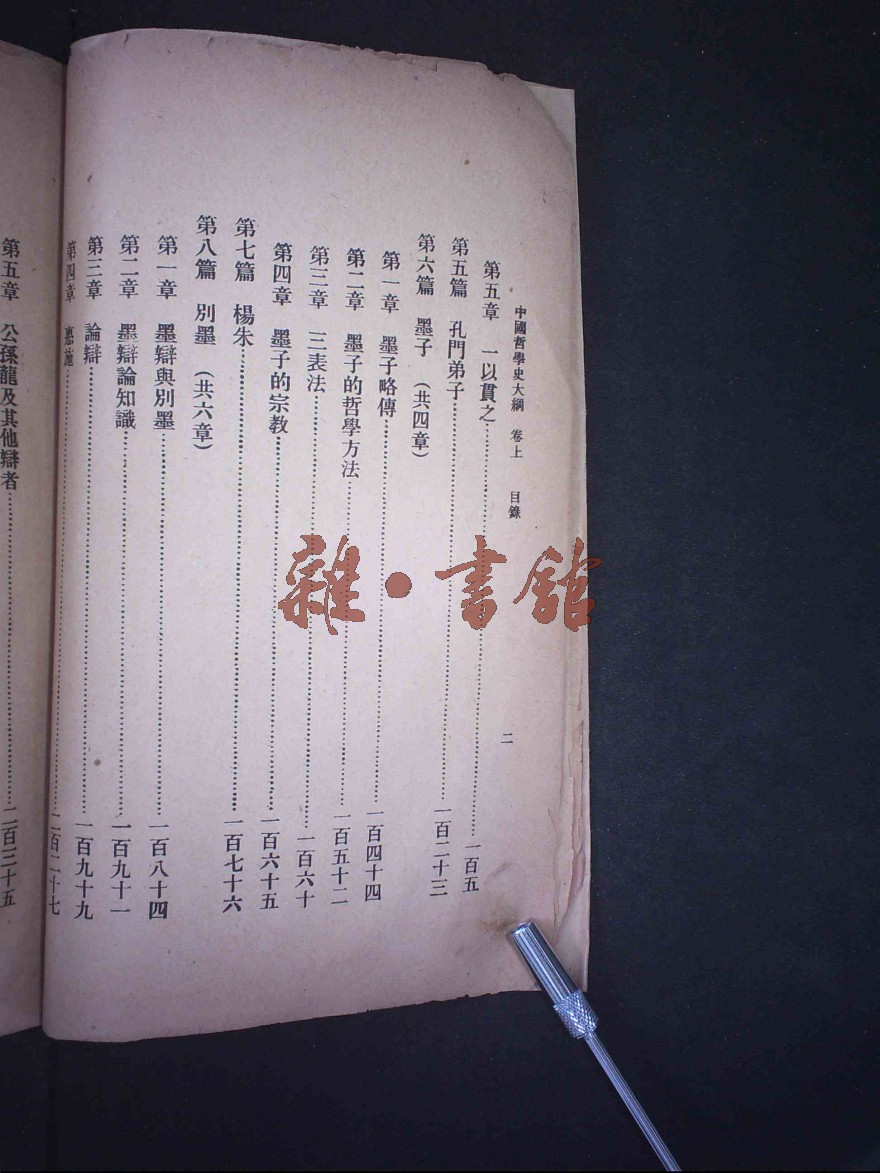 中國哲學史大綱 卷上 目錄 二
第五章 一以貫之…………一百五
第五篇 孔門弟子…………一百二十三
第六篇 墨子 (共四章)
第一章 墨子略傳…………一百四十四
第二章 墨子的哲學方法…………一百五十二
第三章 三表法…………一百六十
第四章 墨子的宗教…………一百六十五
第七篇 楊朱…………一百七十六
第八篇 別墨 (共六章)
第一章 墨辯與別墨…………一百八十四
第二章 墨辯論知識…………一百九十一
第三章 論辯…………一百九十九
第四章 惠施…………二百二十七
第五章 公孫龍及其他辯者…………二百三十五
雜·書館